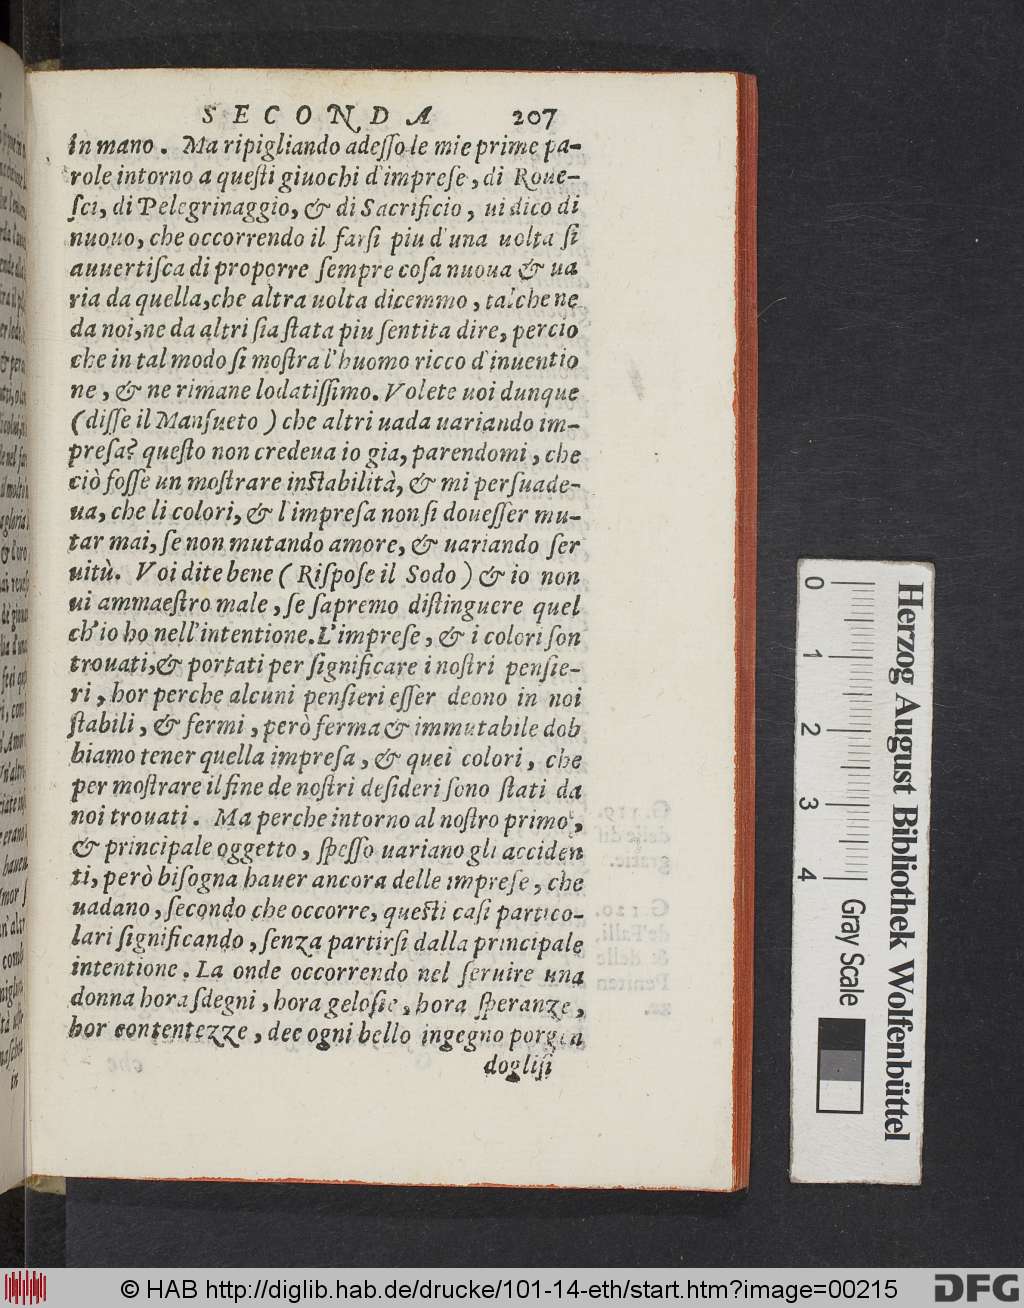 SECONDA 207
in mano. Ma ripigliando adeſſo le mie prime pa-
role intorno a queſti giuochi d'impreſe, di Roue-
ſci, di Pelegrinaggio, & di Sacrificio, ui dico di
nuouo, che occorrendo il farſi piu d'una uolta ſi
auuertiſca di proporre ſempre coſa nuoua & ua
ria da quella, che altra uolta dicemmo, talche ne
da noi, ne da altri ſia ſtata piu ſentita dire, percio
che in tal modo ſi moſtra l'huomo ricco d'inuentio
ne, & ne rimane lodatiſſimo. Volete uoi dunque
(diſſe il Manſueto) che altri uada uariando im-
preſa? queſto non credeua io gia, parendomi, che
ciò foſſe un moſtrare inſtabilità, & mi perſuade-
ua, che li colori, & l'impreſa non ſi doueſſer mu-
tar mai, ſe non mutando amore, & uariando ſer
uitù. Voi dite bene (Riſpoſe il Sodo) & io non
ui ammaeſtro male, ſe ſapremo diſtinguere quel
ch'io ho nell'intentione. L'impreſe, & i colori ſon
trouati, & portati per ſignificare i noſtri penſie-
ri, hor perche alcuni penſieri eſſer deono in noi
ſtabili, & fermi, però ferma & immutabile dob
biamo tener quella impreſa, & quei colori, che
per moſtrare il fine de noſtri deſideri ſono ſtati da
noi trouati. Ma perche intorno al noſtro primo,
& principale oggetto, ſpeſſo uariano gli acciden
ti, però biſogna hauer ancora delle impreſe, che
uadano, ſecondo che occorre, queſti caſi partico-
lari ſignificando, ſenza partirſi dalla principale
intentione. La onde occorrendo nel ſeruire una
donna hora ſdegni, hora geloſie, hora ſperanze,
hor contentezze, dee ogni bello ingegno porgen
dogliſi
0 1 2 3 4
Herzog August Bibliothek Wolfenbüttel
Gray Scale
© HAB http://diglib.hab.de/drucke/101-14-eth/start.htm?image=00215
DFG